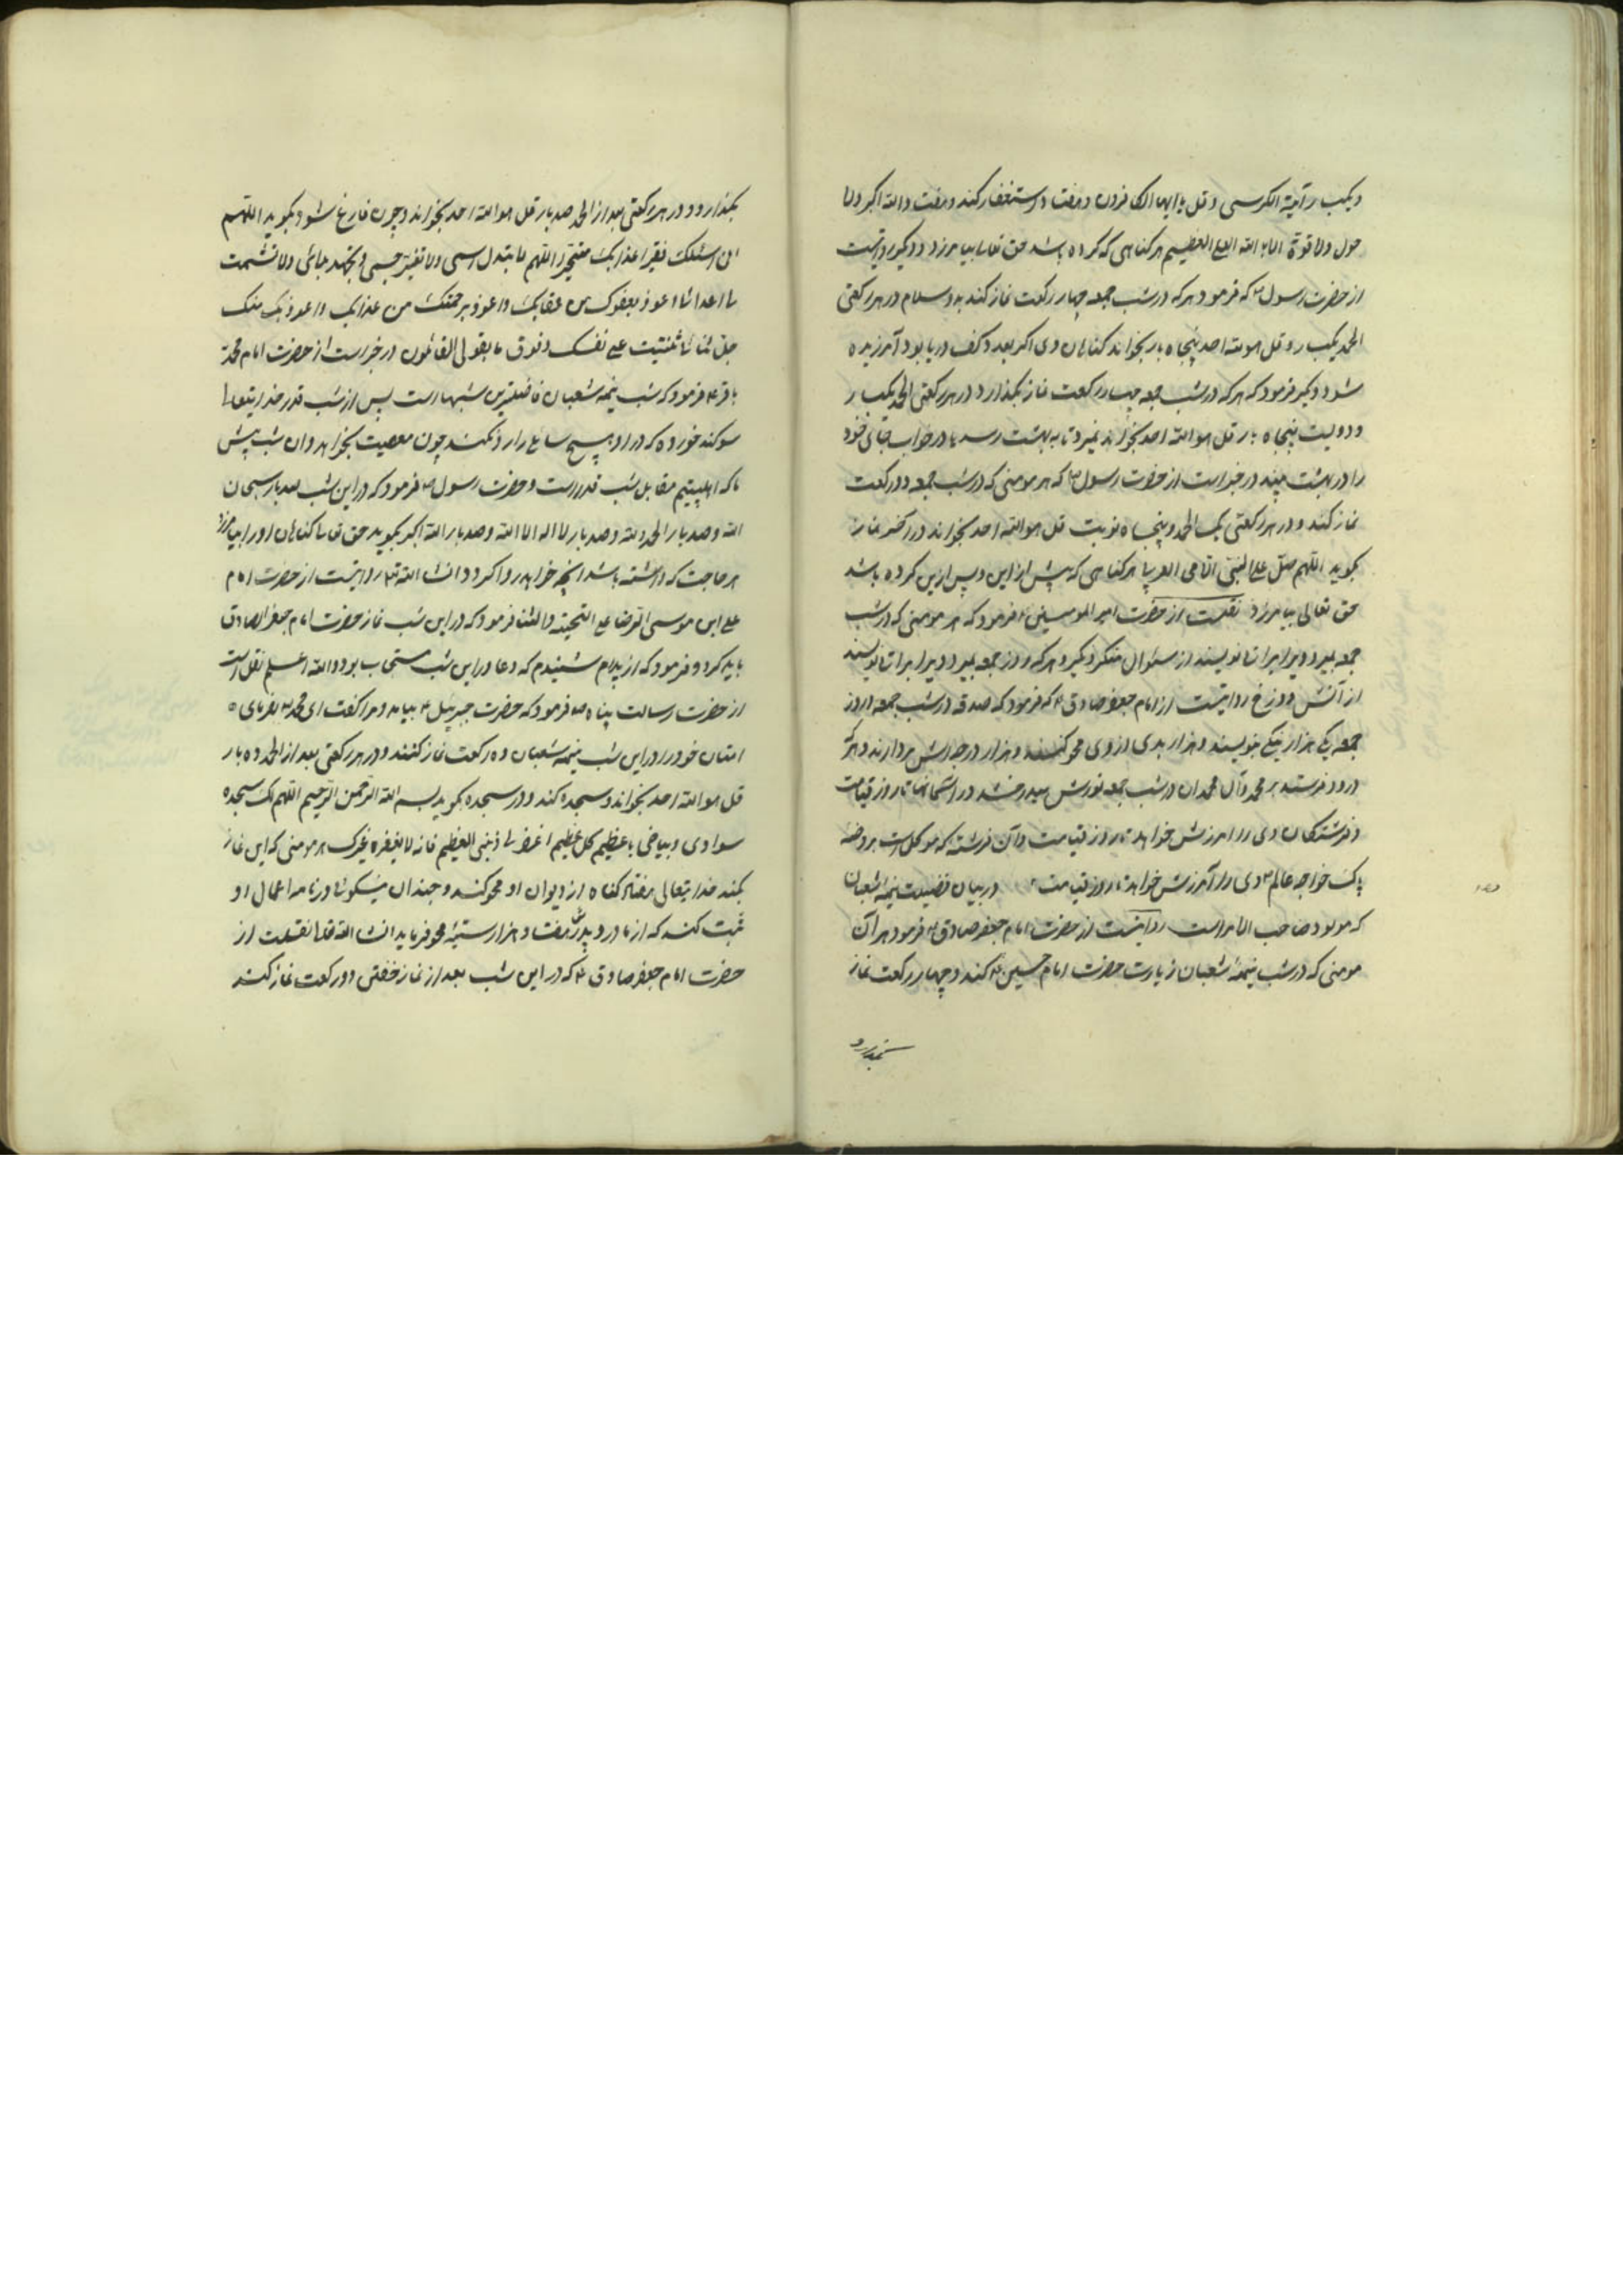 و یکبار آیة الکرسی و قل یا ایها الکافرون و هفت استغفار کند و هفت والله اکبر ولا
حول ولا قوة الا بالله العلی العظیم هر کناهی که کرده باشد حق تعالی بیامرزد و دیگر روایتست
از حضرت رسول ص که فرمود هر که در شب جمعه چهار رکعت نماز کند به دو سلام در هر رکعتی
الحمد یکبار و قل هو الله احد پنجاه بار بخواند کناهان وی اکر بعدد کف دریا بود آمرزیده
شود و دیگر فرمود که هر که در شب جمعه چهار رکعت نماز بکذارد در هر رکعتی الحمد یکبار
و دویست پنجاه بار قل هو الله احد بخواند نمیرد تا به بهشت رسد یا در خواب جای خود
را در بهشت بیند در خبر است از حضرت رسول ص که هر مومنی که در شب جمعه دو رکعت
نماز کند و در هر رکعتی یک الحمد و پنجاه نوبت قل هو الله احد بخواند در آخر نماز
بکوید اللهم صل علی النبی الامی العربی هر کناهی که پیش از این و پس ازین کرده باشد
حق تعالی بیامرزد نقلست از حضرت امیر المومنین ع فرمود که هر مومنی که در شب
جمعه بمیرد ویرا برات نویسند از سئوال منکر و نکیر و هر که روز جمعه بمیرد ویرا برات نویسند
از آتش دوزخ روایتست از امام جعفر صادق ع که فرمود که صدقه در شب جمعه و روز
جمعه یکی هزار نیکی بنویسند و هزار بدی از وی محو کنند و هزار درجه اش بردارند و هر که
درود فرستد بر محمد و آل محمد ان در شب جمعه نورش میدرخشد در آسمانها تا روز قیامت
و فرشتکان وی را امرزش خواهند تا روز قیامت و آن فرشته که موکل است بر روضه
پاک خواجه عالم ص وی را آمرزش خواهد تا روز قیامت در بیان فضیلت نیمه شعبان
که مولود صاحب الامر است روایتست از حضرت امام جعفر صادق ع فرمود هر آن
مومنی که در شب نیمه شعبان زیارت حضرت امام حسین ع کند و چهار رکعت نماز
بکذارد
بکذارد و در هر رکعتی بعد از الحمد صد بار قل هو الله احد بخواند و چون فارغ شود بکوید اللهم
انی اسئلک فقیرا عذابک اللهم لا تبدل اسمی ولا تغیر جسمی ولا تجهد بلائی ولا تشمت
اعدائنا اعوذ بعفوک من عقابک و اعوذ برحمتک من عذابک و اعوذ بک منک
جل ثناؤک اثنیت علی نفسک و فوق ما یقول القائلون در خبر است از حضرت امام محمد
باقر ع فرمود که شب نیمه شعبان فاضلترین شبهاست پس از شب قدر خدایتعالی
سوکند خورده که در او هیچ سائلی را رد نکند چون معصیت نخواهد و ان شب پیش
ما که اهلبیتیم مقابل شب قدر است و حضرت رسول ص فرمود که در این شب صد بار سبحان
الله و صد بار الحمد لله و صد بار لا اله الا الله و صد بار الله اکبر بکوید حق تعالی کناهان او را بیامرزد
هر حاجت که داشته باشد انچه خواهد روا کردد انشا الله تعالی روایتست از حضرت امام
علی ابن موسی الرضا علیه التحیة و الثنا فرمود که در این شب نماز حضرت امام جعفر الصادق
باید کرد و فرمود که از پدرم شنیدم که دعا در این شب مستجاب بود والله اعلم نقل است
از حضرت رسالت پناه ص فرمود که حضرت جبرئیل ع بیامد و مرا کفت ای محمد ص بفرمای
امتان خود را در این شب نیمه شعبان ده رکعت نماز کنند و در هر رکعتی بعد از الحمد ده بار
قل هو الله احد بخواند و سجده کند و در سجده بکوید بسم الله الرحمن الرحیم اللهم لک سجده
سوادی و بیاضی یا عظیم کل عظیم اغفر لی ذنبی العظیم فانه لا یغفره غیرک هر مومنی که این نماز
بکند خدایتعالی هفتاد کناه از دیوان او محو کند و چندان نیکوئی در نامه اعمال او
ثبت کند که از مادر و پدرش هفتاد هزار سیئه محو فرماید انشا الله تعالی نقلست از
حضرت امام جعفر صادق ع که در این شب بعد از نماز خفتن دو رکعت نماز کند